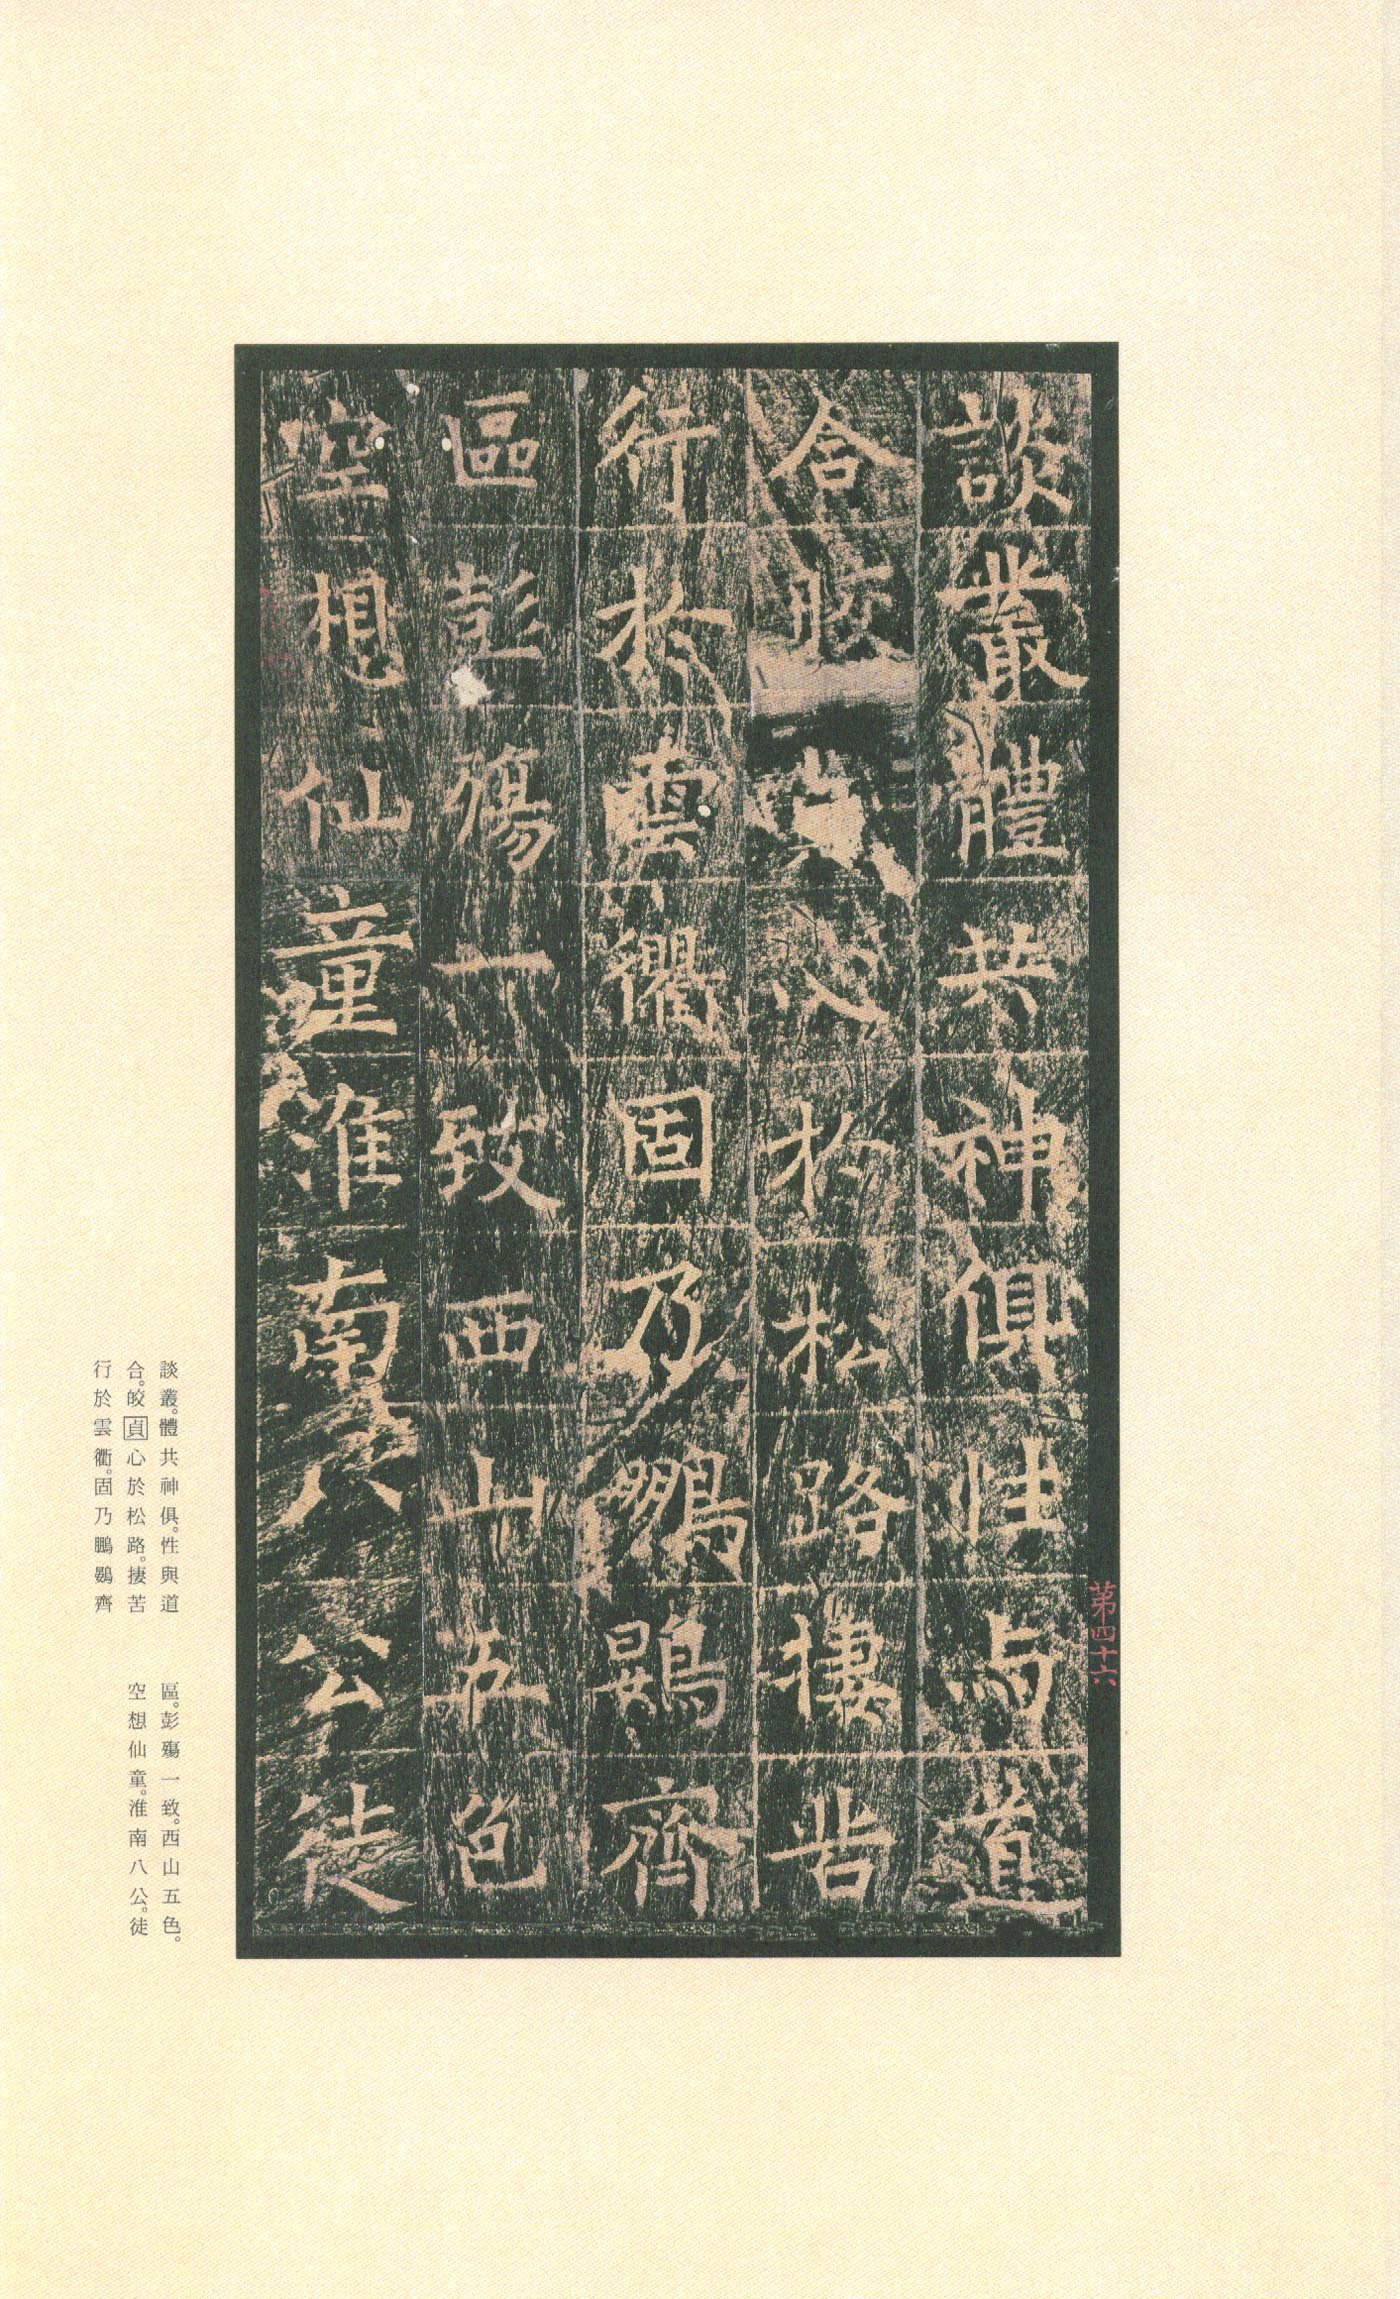 談叢體共神俱性与道
合皎貞心於松路捿苦
行於雲衢固乃鵬鷃齊
區彭殤一致西山五色
空想仙童淮南八公徒
第四十六
談叢。體共神俱。性與道
合。皎貞心於松路。捿苦
行於雲衢。固乃鵬鷃齊
區。彭殤一致。西山五色。
空想仙童。淮南八公。徒